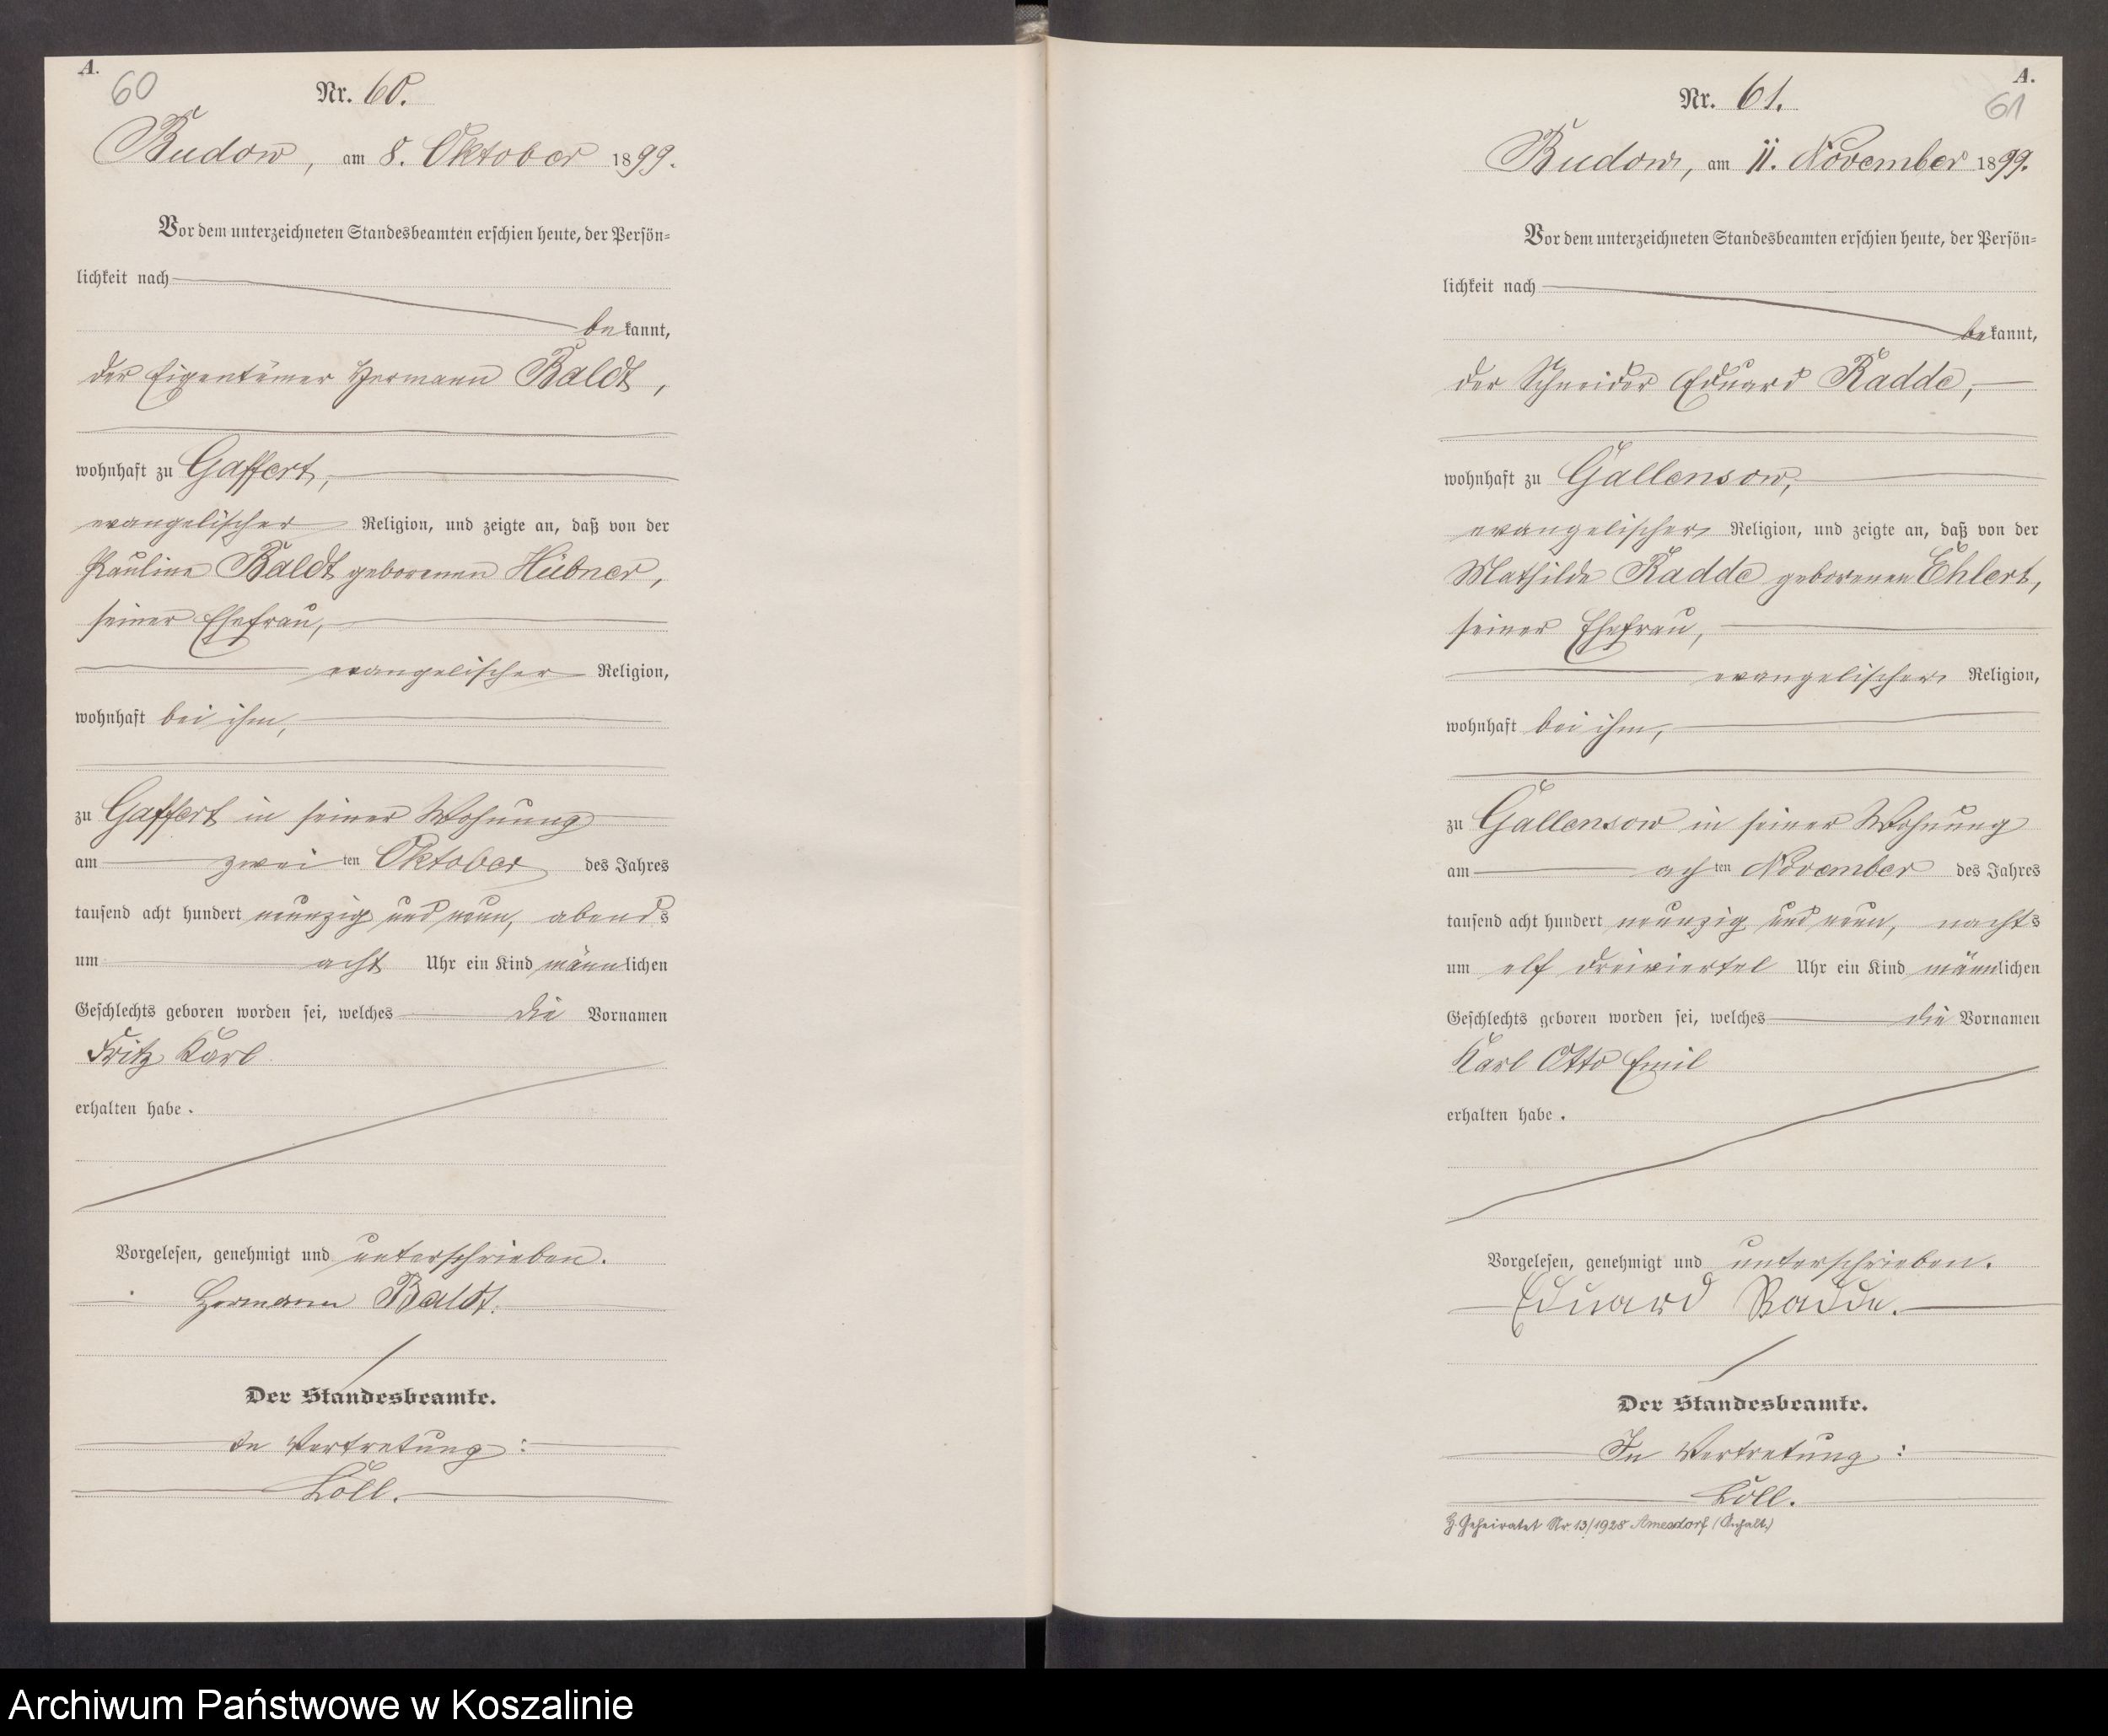 A.
60
Nr. 60.
Budow, am 8. Oktober 1899.
Vor dem unterzeichneten Standesbeamten erschien heute, der Persön-
lichkeit nach
bekannt,
der Eigentümer Hermann Baldt,
wohnhaft zu Gaffert,
evangelischer Religion, und zeigte an, daß von der
Pauline Baldt geborenen Hübner,
seiner Ehefrau,
evangelischer Religion,
wohnhaft bei ihm,
zu Gaffert in seiner Wohnung
am zweiten Oktober des Jahres
tausend acht hundert neunzig und neun, abends
um acht Uhr ein Kind männlichen
Geschlechts geboren worden sei, welches die Vornamen
Fritz Karl
erhalten habe.
Vorgelesen, genehmigt und unterschrieben.
Hermann Baldt.
Der Standesbeamte.
In Vertretung:
Löll.
A.
61
Nr. 61.
Budow, am 11. November 1899.
Vor dem unterzeichneten Standesbeamten erschien heute, der Persön-
lichkeit nach
bekannt,
der Schneider Eduard Radde,
wohnhaft zu Gallensow,
evangelischer Religion, und zeigte an, daß von der
Mathilde Radde geborenen Ehlert,
seiner Ehefrau,
evangelischer Religion,
wohnhaft bei ihm,
zu Gallensow in seiner Wohnung
am achten November des Jahres
tausend acht hundert neunzig und neun, nachts
um elf dreiviertel Uhr ein Kind männlichen
Geschlechts geboren worden sei, welches die Vornamen
Karl Otto Emil
erhalten habe.
Vorgelesen, genehmigt und unterschrieben.
Eduard Radde.
Der Standesbeamte.
In Vertretung:
Löll.
Geheiratet Nr 13/1928 Amesdorf (Anhalt)
Archiwum Państwowe w Koszalinie